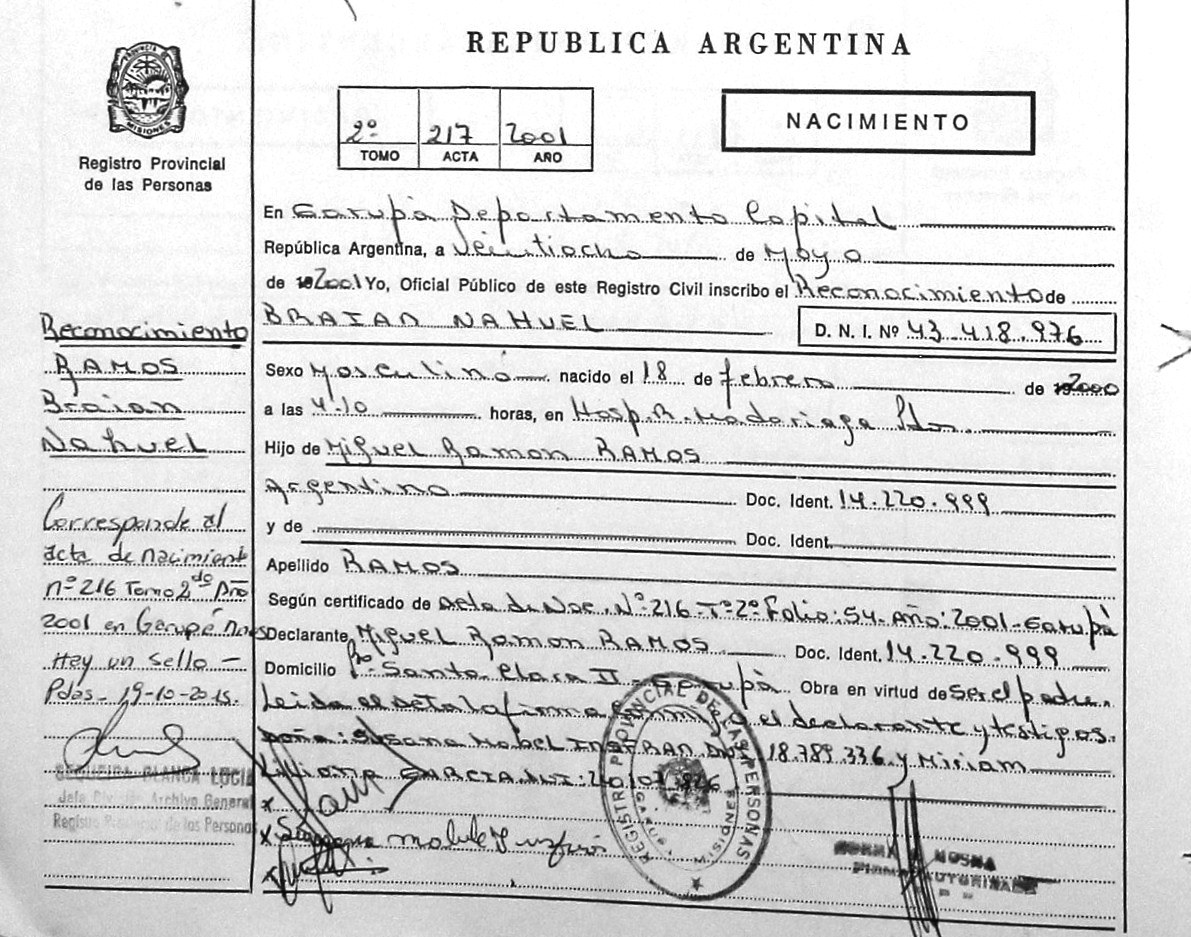 REPUBLICA ARGENTINA
PROVINCIA DE MISIONES
Registro Provincial
de las Personas
2º 217 2001
TOMO ACTA AÑO
NACIMIENTO
En Garupá Departamento Capital
República Argentina, a veintiocho de Mayo
de 2001 Yo, Oficial Público de este Registro Civil inscribo el Reconocimiento de
BRAIAN NAHUEL D. N. I. Nº 43.418.976
Sexo Masculino nacido el 18 de febrero de 2000
a las 4.10 horas, en Hosp. R. Madariaga Pdas.
Hijo de Miguel Ramon RAMOS
Argentino Doc. Ident. 14.220.999
y de Doc. Ident.
Apellido RAMOS
Según certificado de Acta de Nac. Nº 216-Tº2º Folio:54-Año:2001-Garupá
Declarante Miguel Ramon RAMOS Doc. Ident. 14.220.999
Domicilio Bº Santa Clara II - Garupá Obra en virtud de ser el padre.
Leida el acta la firma conmigo el declarante y testigos.
doña: Susana Mabel INSFRAN DNI 18.789.336 y Miriam
Liliana GARCIA
Reconocimiento
RAMOS
Braian
Nahuel
Corresponde al
acta de nacimiento
nº 216 Tomo 2do Año
2001 en Garupá
Hay un sello -
Pdas - 19-10-2015.
SEQUEIRA BLANCA LUCIA
Jefa División Archivo General
Registro Provincial de las Personas
REGISTRO PROVINCIAL DE LAS PERSONAS
NORMA MOSNA
FIRMA AUTORIZADA